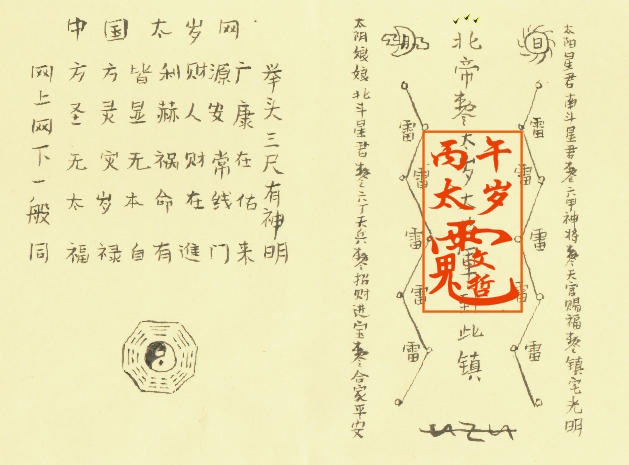 中国太岁网
举头三尺有神明
方方皆利财源广
圣灵显赫人安康
无灾无祸财常在
太岁本命在线佑
福禄自有進门来
网上网下一般同
太阳星君南斗星君六甲神将天官赐福镇宅光明
日
月
雷
雷
雷
雷
雷
雷
雷
雷
北帝太岁大軍到此镇
丙午太岁
文哲
太阴娘娘北斗星君六丁天兵招财进宝合家平安